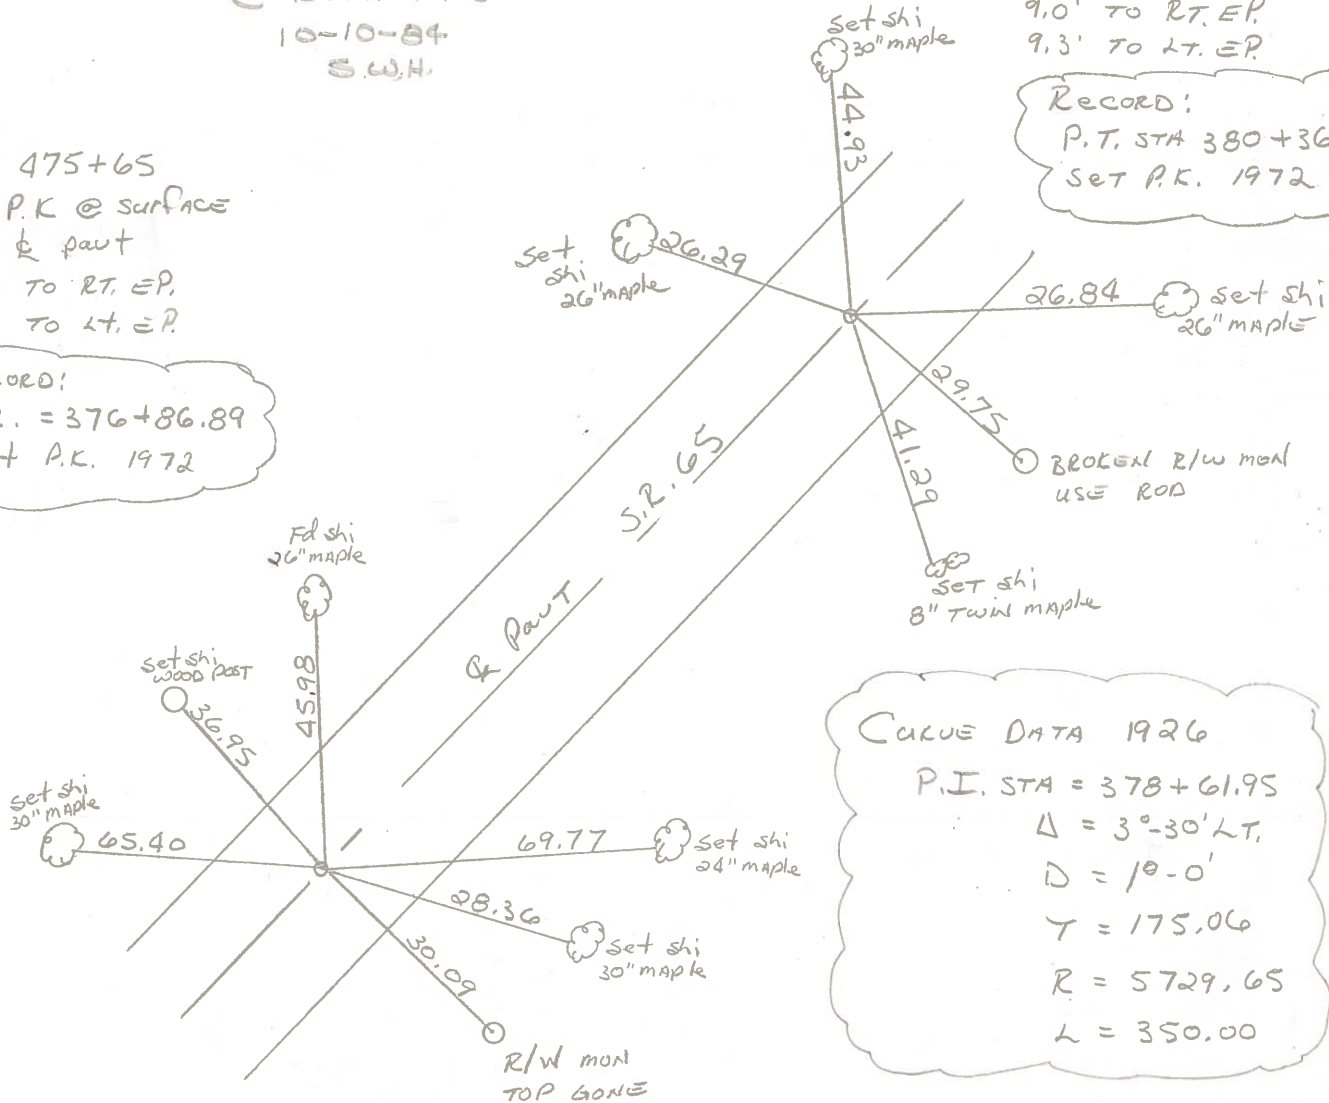 10-10-84
S.W.H.
9.0' TO RT. EP.
9.3' TO LT. EP.
RECORD:
P.T. STA 380+36
SET P.K. 1972
475+65
P.K @ SURFACE
℄ pavt
TO RT. EP.
TO Lt. EP.
ORD:
. = 376+86.89
P.K. 1972
set shi
30" MAPLE
44.93
set
shi
26" MAPLE
26.29
26.84
set shi
26" MAPLE
29.75
BROKEN R/W MON
USE ROD
41.29
SET shi
8" TWIN MAPLE
S.R. 65
℄ PavT
Fd shi
26" MAPLE
45.98
set shi
WOOD POST
36.95
set shi
30" MAPLE
65.40
69.77
set shi
24" MAPLE
28.36
set shi
30" MAPLE
30.09
R/W MON
TOP GONE
CURVE DATA 1926
P.I. STA = 378+61.95
Δ = 3°-30' LT.
D = 1°-0'
T = 175.06
R = 5729.65
L = 350.00